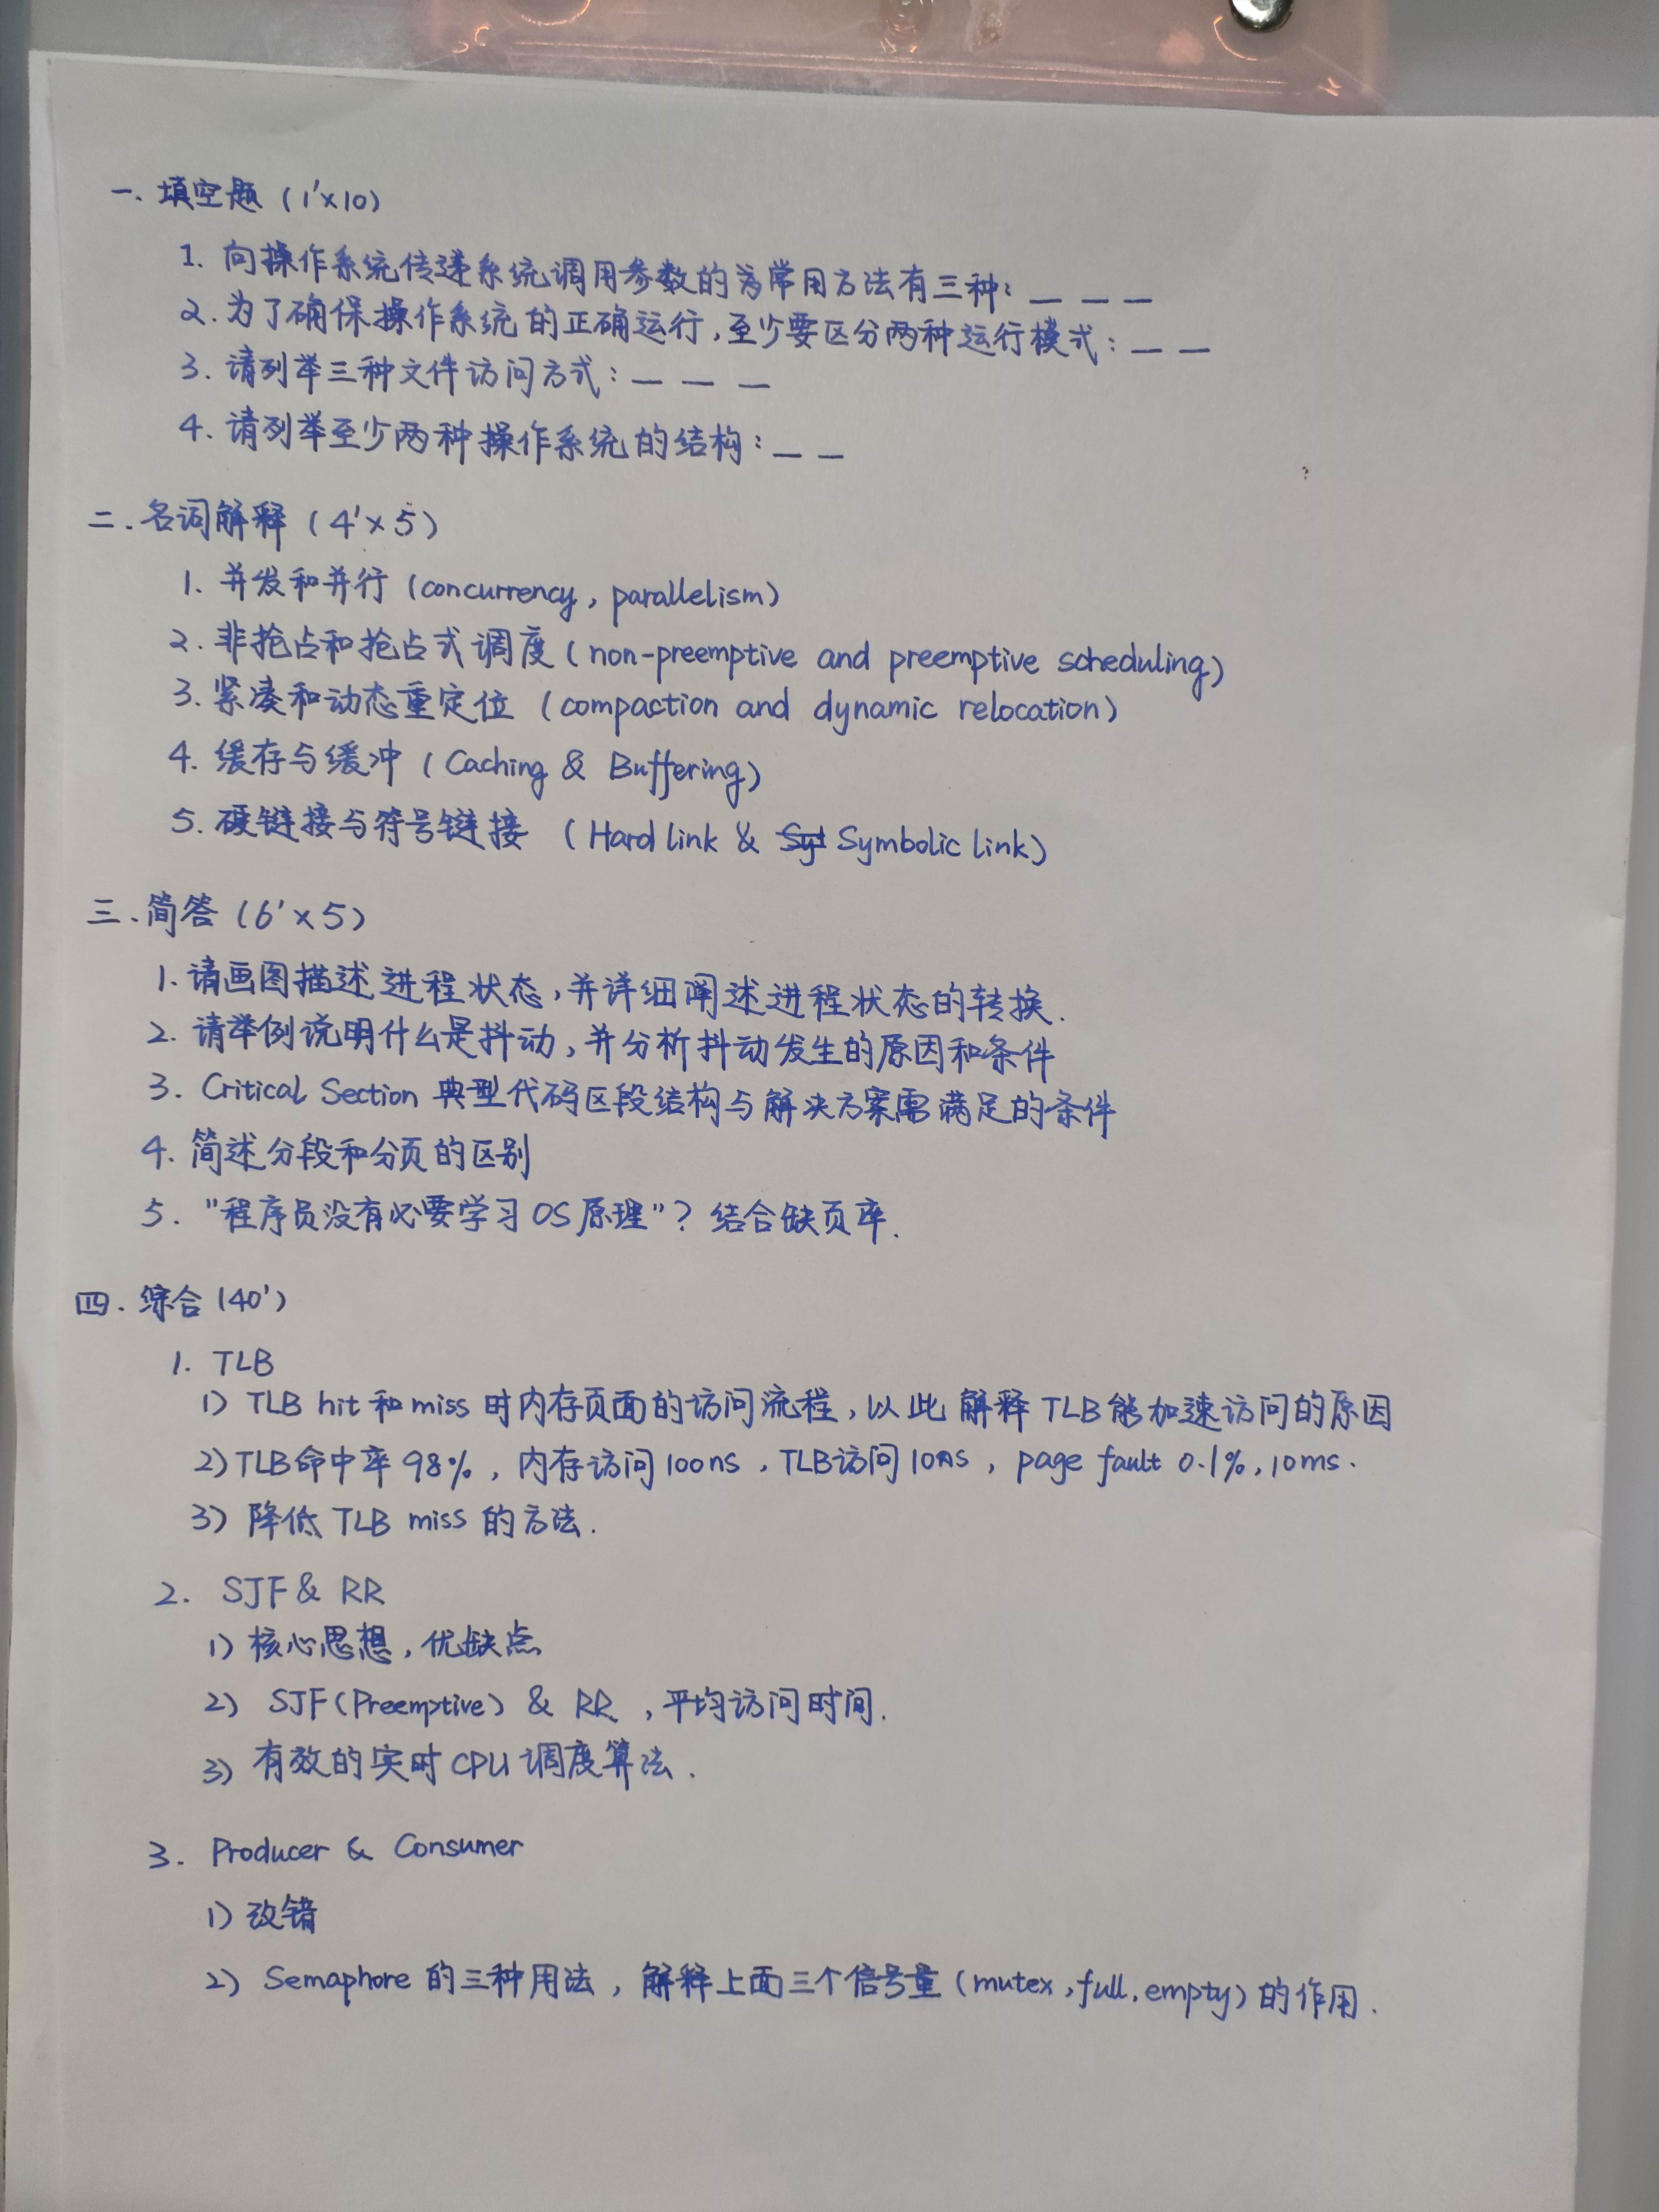 一. 填空题 (1'×10)
1. 向操作系统传递系统调用参数的常用方法有三种: _ _ _
2. 为了确保操作系统的正确运行, 至少要区分两种运行模式: _ _
3. 请列举三种文件访问方式: _ _ _
4. 请列举至少两种操作系统的结构: _ _
二. 名词解释 (4'×5)
1. 并发和并行 (concurrency, parallelism)
2. 非抢占和抢占式调度 (non-preemptive and preemptive scheduling)
3. 紧凑和动态重定位 (compaction and dynamic relocation)
4. 缓存与缓冲 (Caching & Buffering)
5. 硬链接与符号链接 (Hard link & Symbolic link)
三. 简答 (6'×5)
1. 请画图描述进程状态, 并详细阐述进程状态的转换.
2. 请举例说明什么是抖动, 并分析抖动发生的原因和条件
3. Critical Section 典型代码区段结构与解决方案需满足的条件
4. 简述分段和分页的区别
5. "程序员没有必要学习OS原理"? 结合缺页率.
四. 综合 (40')
1. TLB
1) TLB hit 和 miss 时内存页面的访问流程, 以此解释 TLB 能加速访问的原因
2) TLB命中率 98%, 内存访问 100ns, TLB访问 10ns, page fault 0.1%, 10ms.
3) 降低 TLB miss 的方法.
2. SJF & RR
1) 核心思想, 优缺点
2) SJF (Preemptive) & RR, 平均访问时间.
3) 有效的实时CPU调度算法.
3. Producer & Consumer
1) 改错
2) Semaphore 的三种用法, 解释上面三个信号量 (mutex, full, empty) 的作用.